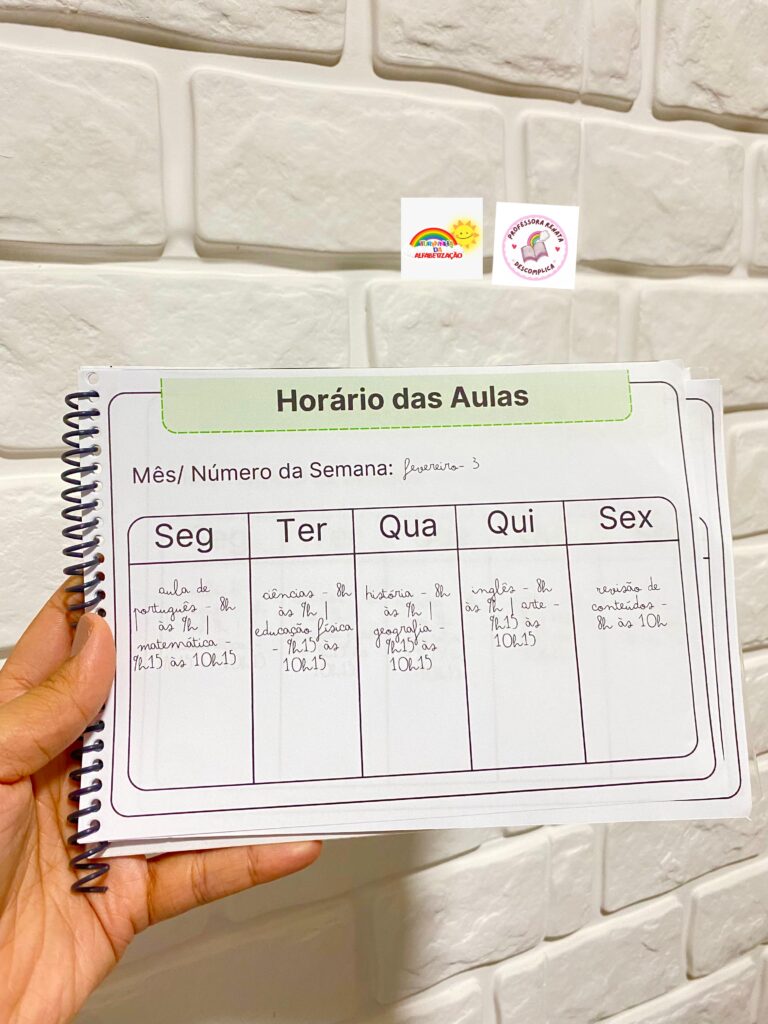 DA
ALFABETIZAÇÃO
PROFESSORA RENATA
DESCOMPLICA
Horário das Aulas
Mês/ Número da Semana: fevereiro - 3
Seg
Ter
Qua
Qui
Sex
aula de
português - 8h
às 9h |
matemática -
9h15 às 10h15
ciências - 8h
às 9h |
educação física
- 9h15 às
10h15
história - 8h
às 9h |
geografia -
9h15 às
10h15
inglês - 8h
às 9h | arte -
9h15 às
10h15
revisão de
conteúdos -
8h às 10h